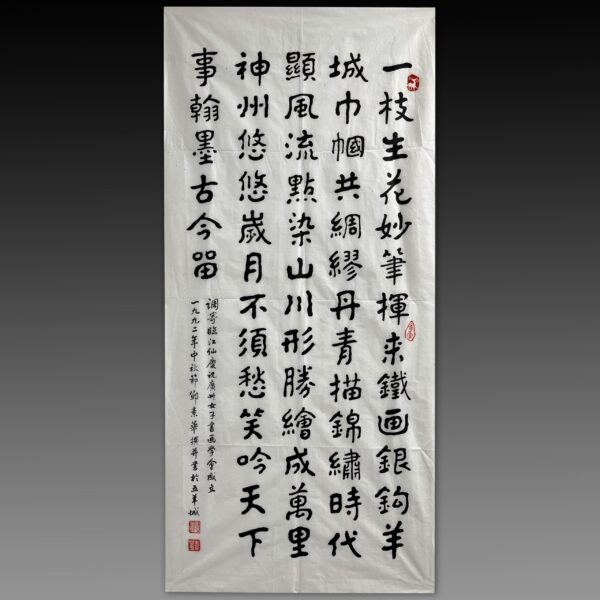 一枝生花妙筆揮来鐵画銀鈎羊
城巾幗共綢繆丹青描錦繡時代
顯風流點染山川形勝繪成萬里
神州悠悠歲月不須愁笑吟天下
事翰墨古今留
調寄臨江仙慶祝廣州女子書画学会成立
一九九二年中秋節鄧景華撰并書於五羊城